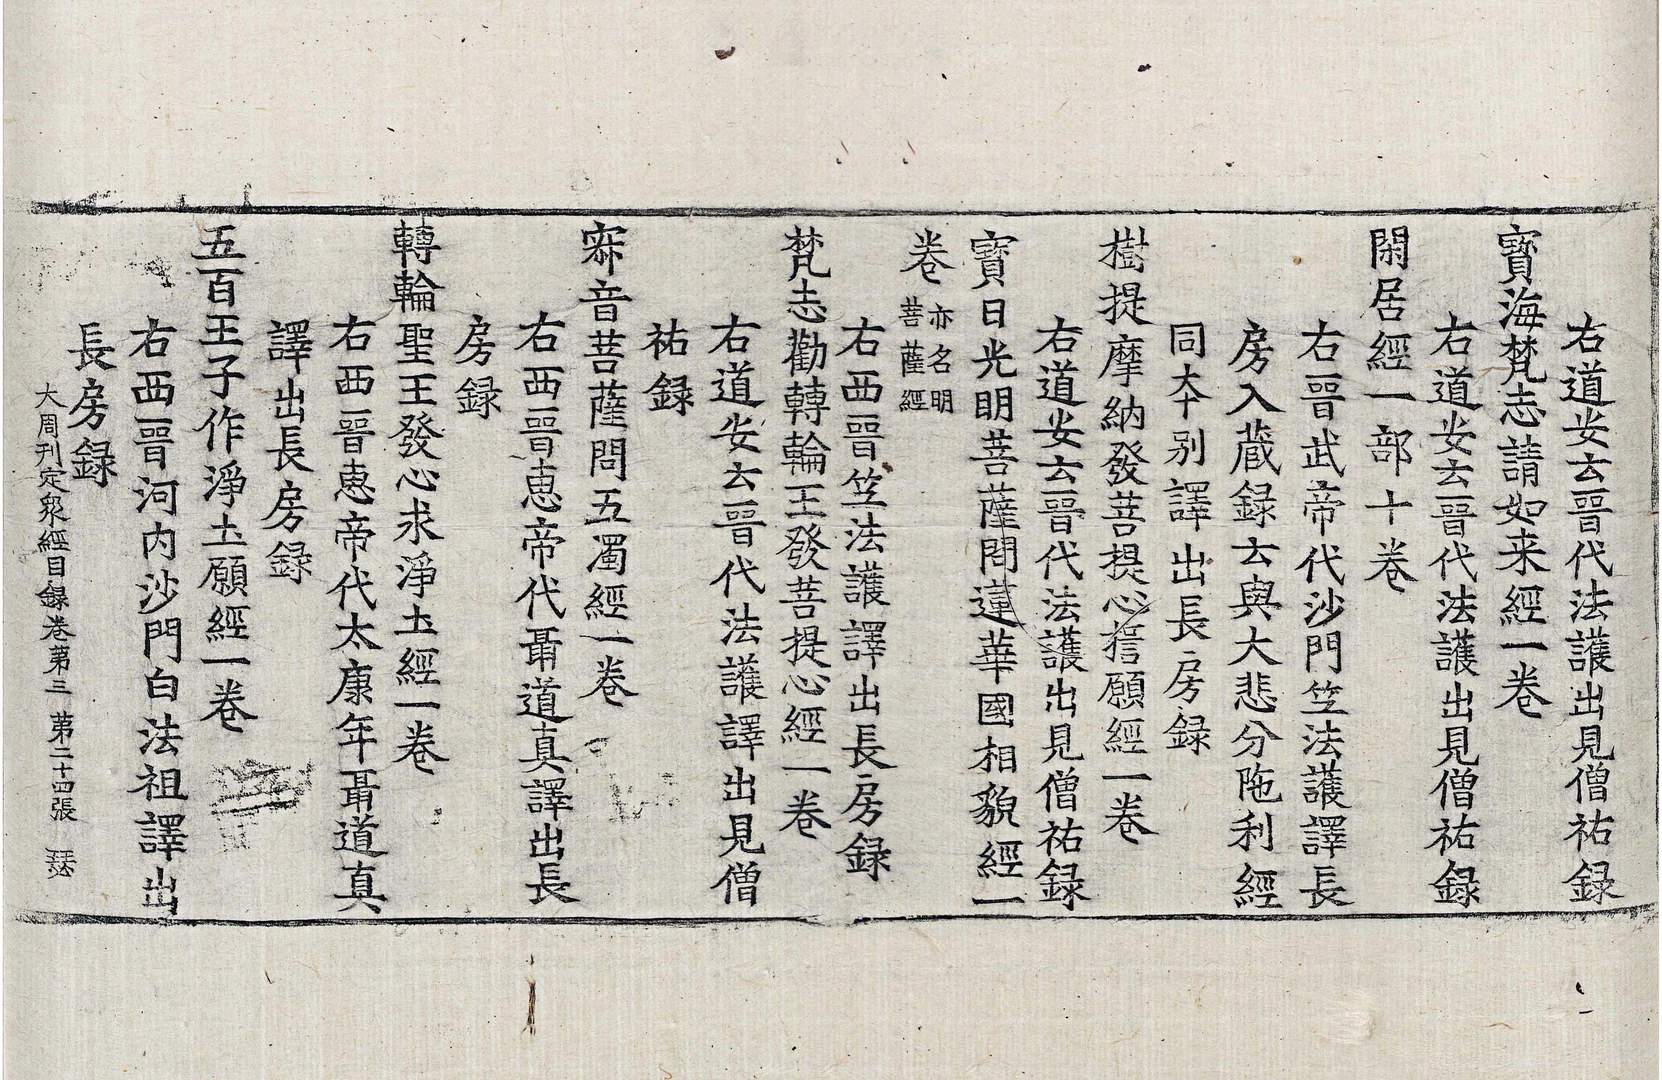 右道安云晉代法護出見僧祐録
寶海梵志請如来經一卷
右道安云晉代法護出見僧祐録
閑居經一部十卷
右晉武帝代沙門竺法護譯長
房入蔵録云與大悲分陁利經
同夲别譯出長房録
樹提摩納發菩提心誓願經一卷
右道安云晉代法護出見僧祐録
寳日光明菩薩問蓮華國相貌經一
卷亦名明菩薩經
右西晉竺法護譯出長房録
梵志勸轉輪王發菩提心經一卷
右道安云晉代法護譯出見僧
祐録
寂音菩薩問五濁經一卷
右西晉惠帝代聶道真譯出長
房録
轉輪聖王發心求淨土經一卷
右西晉惠帝代太康年聶道真
譯出長房録
五百王子作淨土願經一卷
右西晉河内沙門白法祖譯出
長房録
大周刊定衆經目録卷第三 第二十四張 瑟